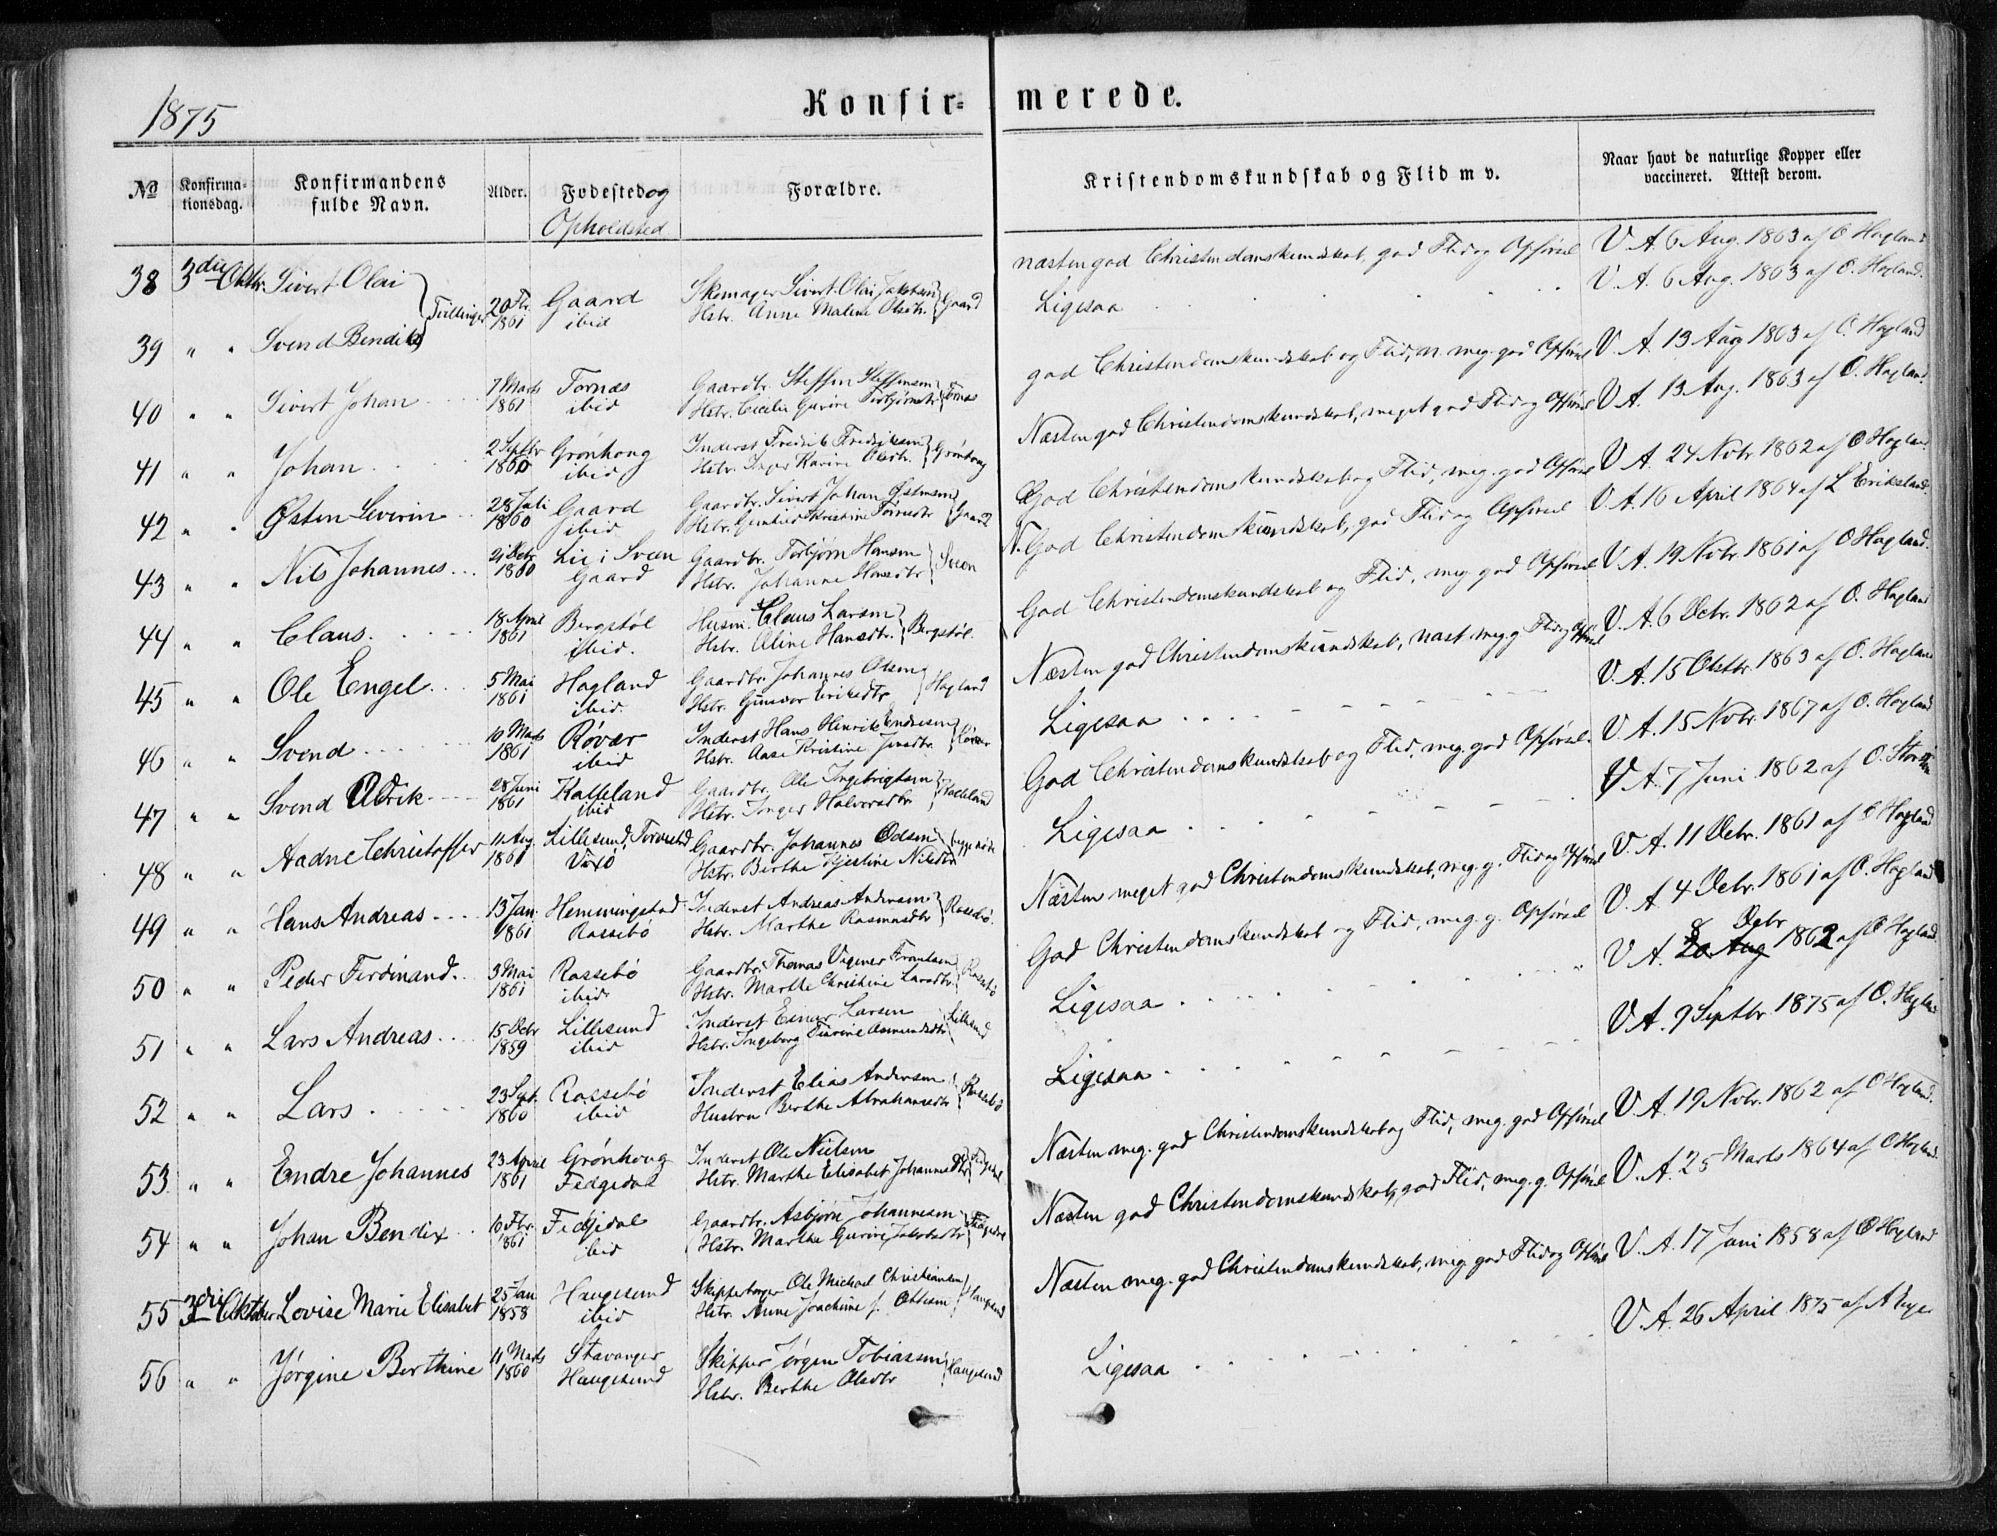 1875
Konfir= merede.
No Konfirma-tionsdag. Konfirmandens fulde Navn. Alder. Fødested og Opholdsted Forældre. Kristendomskundskab og Flid m v. Naar havt de naturlige Kopper eller vaccineret. Attest derom.
38 3die Oktbr. Sivert Olai } Tvillinger 20 Fbr. 1861 Gaard ibid Skomager Sivert Olai Jakobsen Hstr. Anne Malene Olsdtr. } Gaard næsten god Christendomskundskab, god Flid og Opførsel V. A. 6 Aug. 1863 af O Hagland
39 " " Svend Bendik Ligesaa V. A. 6 Aug. 1863 af O. Hagland.
40 " " Sivert Johan 7 Marts 1861 Tornæs ibid Gaardbr. Steffen Steffensen Hstr. Cecilie Gurine Torbjørnsdtr } Tornæs god Christendomskundskab og Flid, meg. god Opførsel V. A. 13 Aug 1863 af O. Hagland
41 " " Johan 2 Septbr 1860 Grønhoug ibid Inderst Fredrik Fredriksen Hstr. Inger Karine Olsdtr. } Grønhoug Næsten god Christendomskundskab, meget god Flid og Opførsel V. A. 13 Aug. 1863 af O. Hagland.
42 " " Østen Severin 28 Juli 1860 Gaard ibid Gaardbr. Sivert Johan Østensen Hstr. Kristine } Gaard God Christendomskundskab og Flid, meg. god Opførsel V. A. 24 Nvbr. 1862 af O Hagland.
43 " " Nils Johannes 21 Dcbr. 1860 Lie i Sveen Gaard Gaardbr. Torbjørn Hansen Hstr. Johanne Hansdtr } Sveen N. God Christendomskundskab, god Flid og Opførsel V. A. 16 April 1864 af L Eriksland.
44 " " Claus 18 April 1861 Bergstøl ibid. Husm. Claus Larsen Hstr. Oline Hansdtr. } Bergstøl. God Christendomskundskab og Flid, meg. god Opførsel V. A. 19 Nvbr. 1861 af O Hagland.
45 " " Ole Engel 5 Mai 1861 Hagland ibid. Gaardbr. Johannes Olsen Hstr. Gunvor Eriksdtr } Hagland Næsten god Christendomskundskab, næst. meg. g Flid og Opførsel V. A. 6 Dcbr. 1862 af O. Hagland
46 " " Svend 10 Marts 1861 Røvær ibid Inderst Hans Henrik Endresen Hstr. Aase Kristine Jensdtr. } Røvær Ligesaa V. A. 15 Oktbr 1863 af O. Hagland
47 " " Svend Oldrik 28 Juni 1861 Kalleland ibid Gaardbr. Ole Ingebrigtsen Hstr. Inger Halvorsdtr } Kalleland God Christendomskundskab og Flid, meg. god Opførsel. V. A. 15 Nvbr. 1867 af O. Hagland
48 " " Aadne Christoffer 11 Aug 1861 Lillesund, Torvestad Gaardbr. Johannes Odsen Hstr. Berthe Kjestine Nilsdtr } Ligesaa V. A. 7 Juni 1862 af O.
49 " " Hans Andreas 13 Jan. 1861 Hemmingstad Rossebø Inderst Andreas Andersen Hstr. Marthe Rasmusdtr } Rossebø. Næsten meget god Christendomskundskab, meg. g. Flid og Opførsel V. A. 11 Dcbr. 1861 af O Hagland
50 " " Peder Ferdinand. 3 Mai 1861 Rossebø ibid. Gaardbr. Thomas Frantsen Hstr. Marthe Christine Larsdtr. } Rossebø God Christendomskundskab og Flid, meg. g. Opførsel V. A. 4 Dcbr. 1861 af O. Hagland
51 " " Lars Andreas 15 Dcbr 1859 Lillesund ibid Inderst Einar Larsen Hstr. Ingeborg Asmundsdtr } Lillesund Ligesaa V. A. 8 Dcbr 1862 af O Hagland.
52 " " Lars 23 Spt. 1860 Rossebø ibid Inderst Elias Andersen Hustru Berthe Abrahamsdtr } Rossebø Ligesaa V. A. 9 Septbr. 1875 af O. Hagland
53 " " Endre Johannes 23 April 1861 Grønhoug Fedgedal Inderst Ole Nielsen Hstr. Marthe Elisabet Johannesdtr } Næsten meg. god Christendomskundskab og Flid, meg. god Opførsel V. A. 19 Nvbr. 1862 af O Hagland.
54 " " Johan Bendix 10 Fbr. 1861 Fedjedal ibid Gaardbr. Asbjørn Johannesen Hstr. Marthe Gurine Jakobsdtr } Næsten god Christendomskundskab, god Flid, meg. g. Opførsel V. A. 25 Marts 1864 af O Hagland.
55 3die Oktober Lovise Marie Elisabet 25 Jan 1858 Haugesund ibid Skipperborger Ole Michael Christiansen Hstr. Anne Joachime f. Ottesen } Haugesund Næsten meg. god Christendomskundskab, meg god Flid og Opførsel V. A. 17 Juni 1858 af O Hagland
56 " " Jørgine Berthine 11 Marts 1860 Stavanger Haugesund Skipper Jørgen Tobiassen Hstr. Berthe Olsdtr } Haugesund Ligesaa V. A. 26 April 1875 af